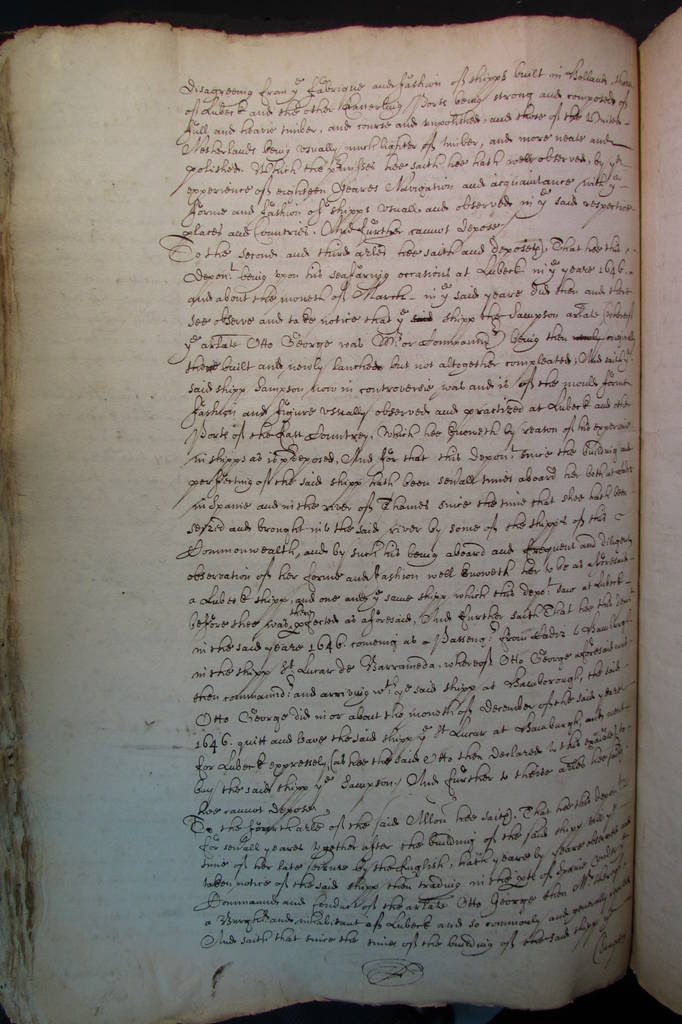 disagreeing from ye fabrique and fashion of shipps built in Holland, those
of Lubeck and the other Easterling Ports being strong and composed of
full and heavie timber, and course and unpolished, and those of the United
Netherlands being usually much lighter of timber, and more neate and
polished. Which the premisses hee saith hee hath well observed, by ye
experience of eighteen yeares Navigation and acquaintance with ye
forme and fashion of shipps usuall and observed in ye said respective
places and Countries. And further cannot depose
To the second and third arles hee saith and deposeth, That hee this
depont being upon his seafaring occasions at Lubeck in ye yeare 1646.
and about the moneth of March in ye said yeare did then and there
see observe and take notice that ye said shipp the Sampson arlate (whereof
ye arlate Otto George was Mr or Commander) being then newly originally
there built and newly lanched but not altogether compleated; And saith ye
said shipp Sampson now in controversie was and is of the mould forme
fashion and figure usually observed and practized at Lubeck and other
Ports of the East Countrey, which hee knoweth by reason of his experience
in shipps as is predeposed, And for that this depont since the building and
perfecting of the said shipp hath been severall times aboard her both at
in Spaine and in the river of Thames since the time that shee hath been
seized and brought into the said river by some of the shipps of this
Commonwealth, and by such his being aboard and frequent and diligent
observation of her forme and fashion well knoweth her to be as aforesaid
a Lubeck shipp, and one and ye same shipp which this depont saw at Lubeck
before shee was then perfected as aforesaid, And further saith That hee this depont
in the said yeare 1646. coming as a Passenger from Cadiz to Hamburgh
in the shipp St. Lucar de Barrameda, whereof Otto George aforesaid was
then commander and arriving wth ye said shipp at Hamborough, the said
Otto George did in or about the moneth of December of the said yeare
1646. quitt and leave the said shipp ye St Lucar at Hamburgh, and went
for Lubeck expressely, (as hee the said Otto then declared to this examinate) to
buy the said shipp ye Sampson. And further to theise arles hee saith
hee cannot depose
To the fowrth arle of the said Allon hee saith, That hee this deponent
for severall yeares together after the building of the said shipp till ye
time of her late seizure by the English, hath yeare by yeare observed and
taken notice of the said shipp then trading in the parts of Spaine under ye
Command and Conduct of the arlate Otto George then Mr thereof
a Burgher and inhabitant of Lubeck and so commonly and generally reputed
And saith that since the time of the building of the said shipp ye
Sampson